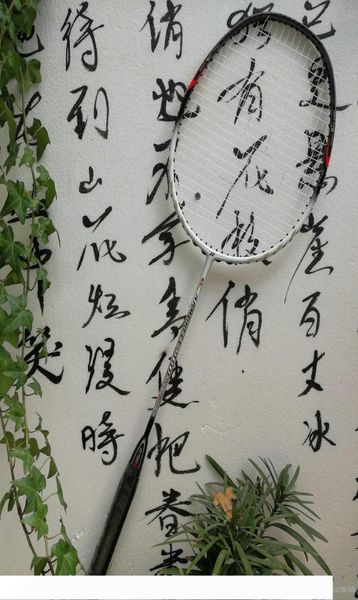 已是悬崖百丈冰
犹有花枝俏
俏也不争春只把春来
待到山花烂漫時
中笑